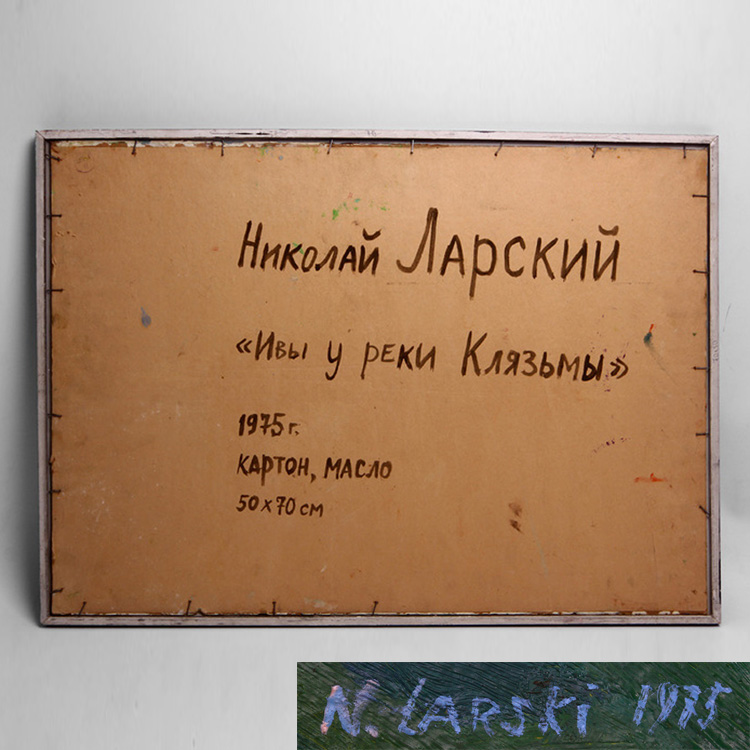 Николай Ларский
«Ивы у реки Клязьмы»
1975 г.
картон, масло
50 x 70 см
N. LARSKi 1975